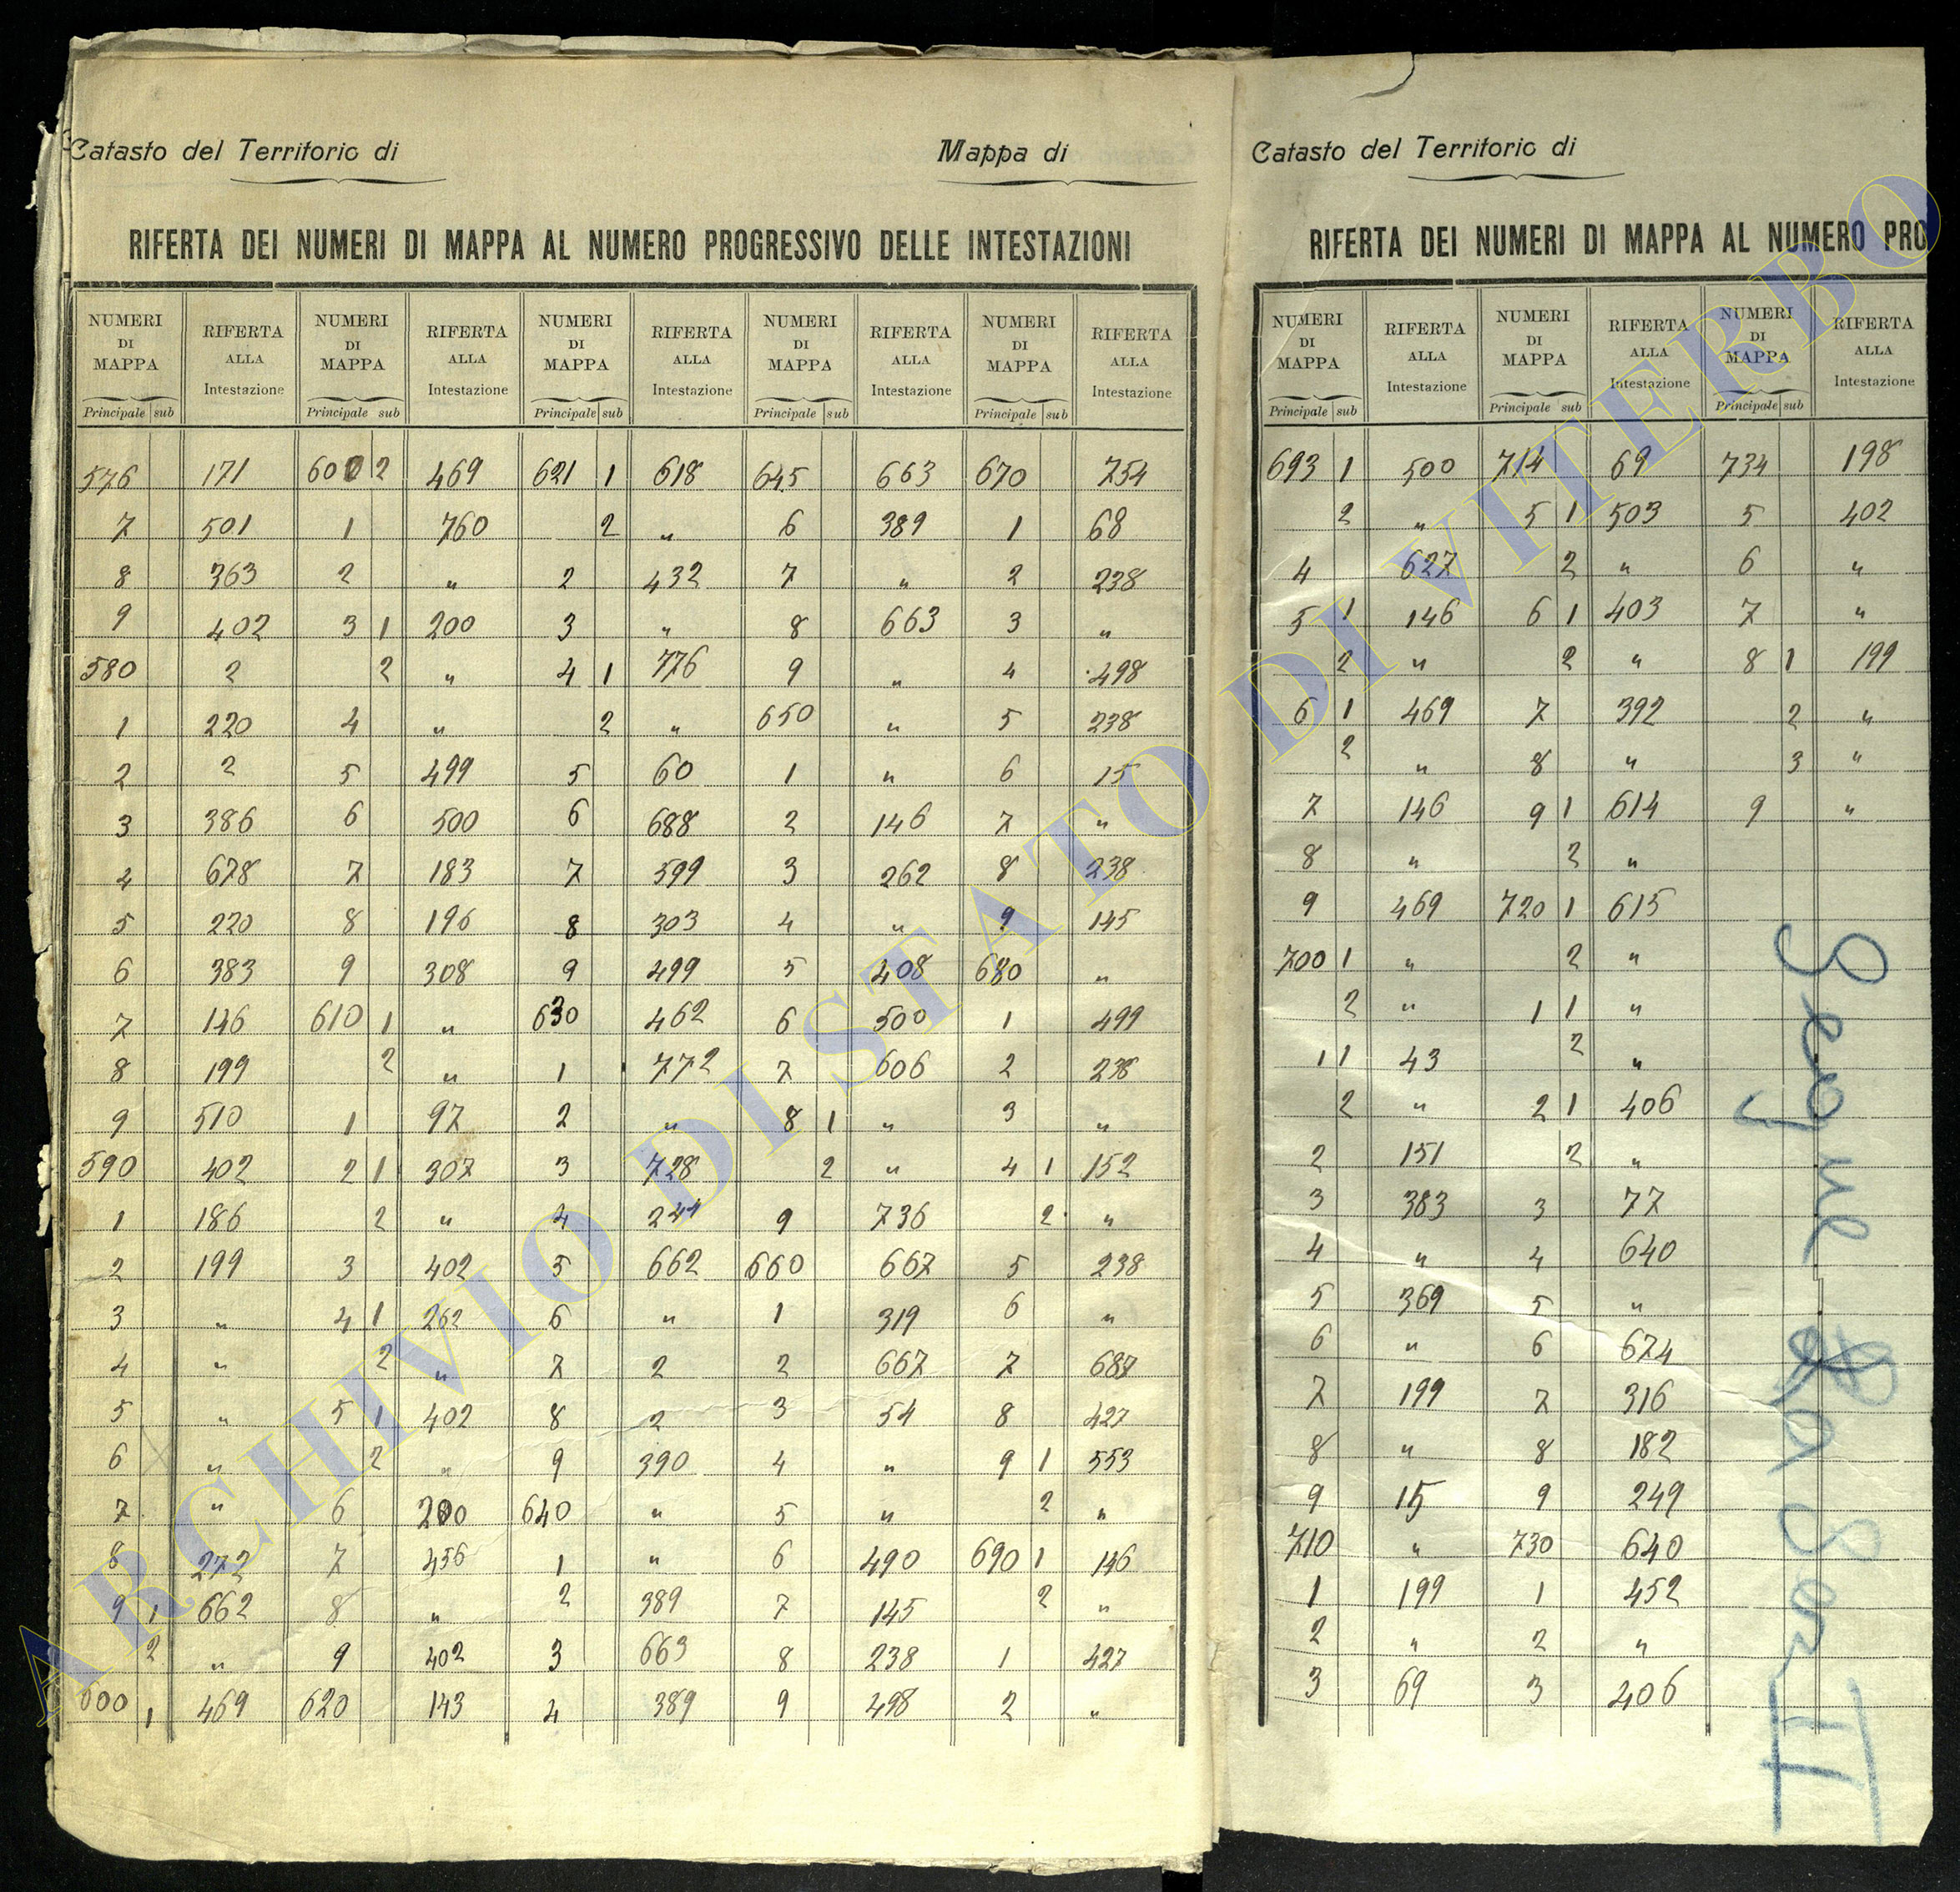 Catasto del Territorio di Mappa di
RIFERTA DEI NUMERI DI MAPPA AL NUMERO PROGRESSIVO DELLE INTESTAZIONI
NUMERI DI MAPPA RIFERTA ALLA Intestazione NUMERI DI MAPPA RIFERTA ALLA Intestazione NUMERI DI MAPPA RIFERTA ALLA Intestazione NUMERI DI MAPPA RIFERTA ALLA Intestazione NUMERI DI MAPPA RIFERTA ALLA Intestazione
Principale sub Principale sub Principale sub Principale sub Principale sub
576 171 600 2 469 621 1 618 645 663 670 754
7 501 1 760 2 " 6 389 1 68
8 363 2 " 2 432 7 " 2 238
9 402 3 1 200 3 " 8 663 3 "
580 2 2 " 4 1 776 9 " 4 498
1 220 4 " 2 " 650 " 5 238
2 2 5 499 5 60 1 " 6 15
3 386 6 500 6 688 2 146 7 "
4 678 7 183 7 599 3 262 8 238
5 220 8 196 8 303 4 " 9 145
6 383 9 308 9 499 5 408 680 "
7 146 610 1 " 630 462 6 500 1 499
8 199 2 " 1 772 7 606 2 238
9 510 1 97 2 " 8 1 " 3 "
590 402 2 1 307 3 728 2 " 4 1 152
1 186 2 " 4 244 9 736 2 "
2 199 3 402 5 662 660 667 5 238
3 " 4 1 262 6 " 1 319 6 "
4 " 2 " 7 2 2 667 7 687
5 " 5 1 402 8 2 3 54 8 427
6 " 2 " 9 390 4 " 9 1 553
7 " 6 200 640 " 5 " 2 "
8 272 7 456 1 " 6 490 690 1 146
9 1 662 8 " 2 389 7 145 2 "
2 " 9 402 3 663 8 238 1 427
600 1 469 620 143 4 389 9 498 2 "
Catasto del Territorio di
RIFERTA DEI NUMERI DI MAPPA AL NUMERO PRO
NUMERI DI MAPPA RIFERTA ALLA Intestazione NUMERI DI MAPPA RIFERTA ALLA Intestazione NUMERI DI MAPPA RIFERTA ALLA Intestazione
Principale sub Principale sub Principale sub
693 1 500 714 69 734 198
2 " 5 1 503 5 402
4 627 2 " 6 "
5 1 146 6 1 403 7 "
2 " 2 " 8 1 199
6 1 469 7 392 2 "
2 " 8 " 3 "
7 146 9 1 614 9 "
8 " 2 "
9 469 720 1 615
700 1 " 2 "
2 " 1 1 "
1 1 43 2 "
2 " 2 1 406
2 151 2 "
3 383 3 77
4 " 4 640
5 369 5 "
6 " 6 674
7 199 7 316
8 " 8 182
9 15 9 249
710 " 730 640
1 199 1 452
2 " 2 "
3 69 3 406
Segue
II
ARCHIVIO DI STATO DI VITERBO